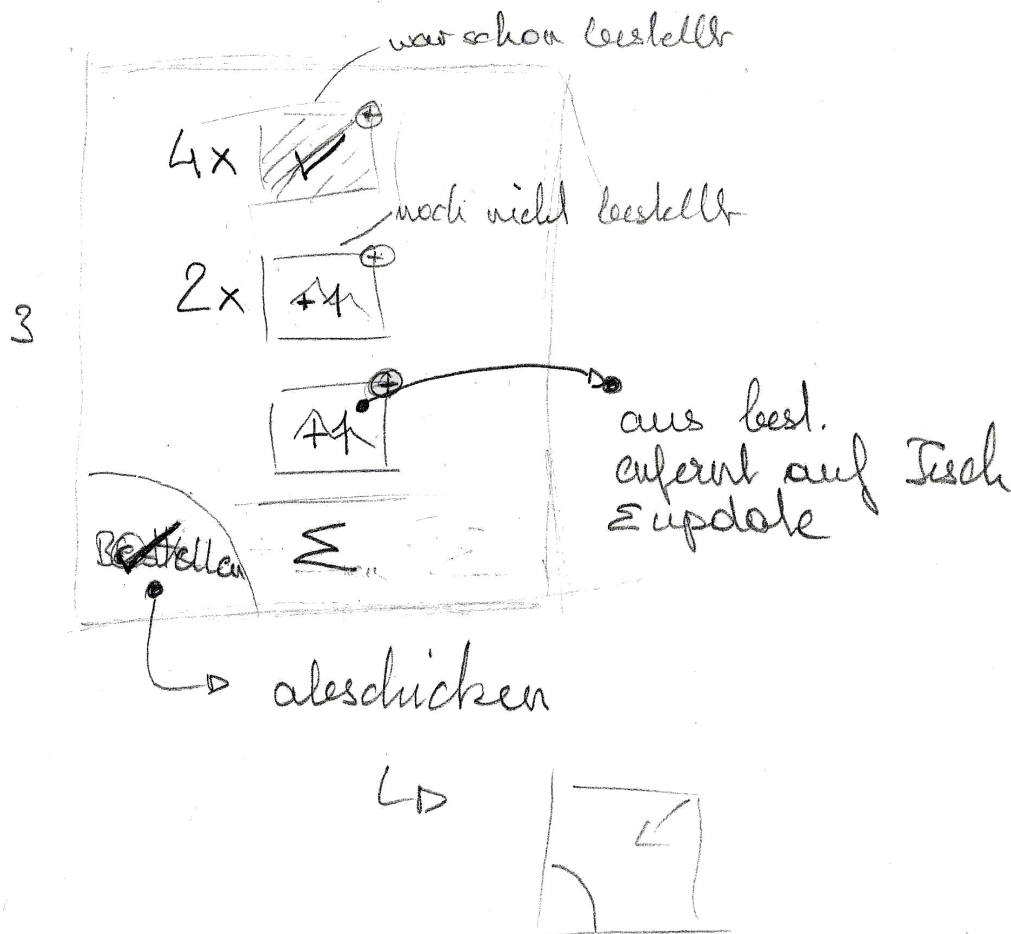 war schon bestellt
4x
noch nicht bestellt
2x
3
aus best.
enfernt auf Tisch
Σ update
Bestellen
Σ
abschicken